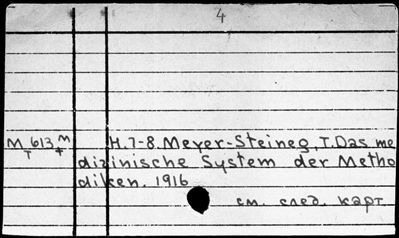 4
M 613 m
T т
H.7-8. Meyer-Steineg, T. Das me
dizinische System der Metho
diken. 1916
см. след. карт.